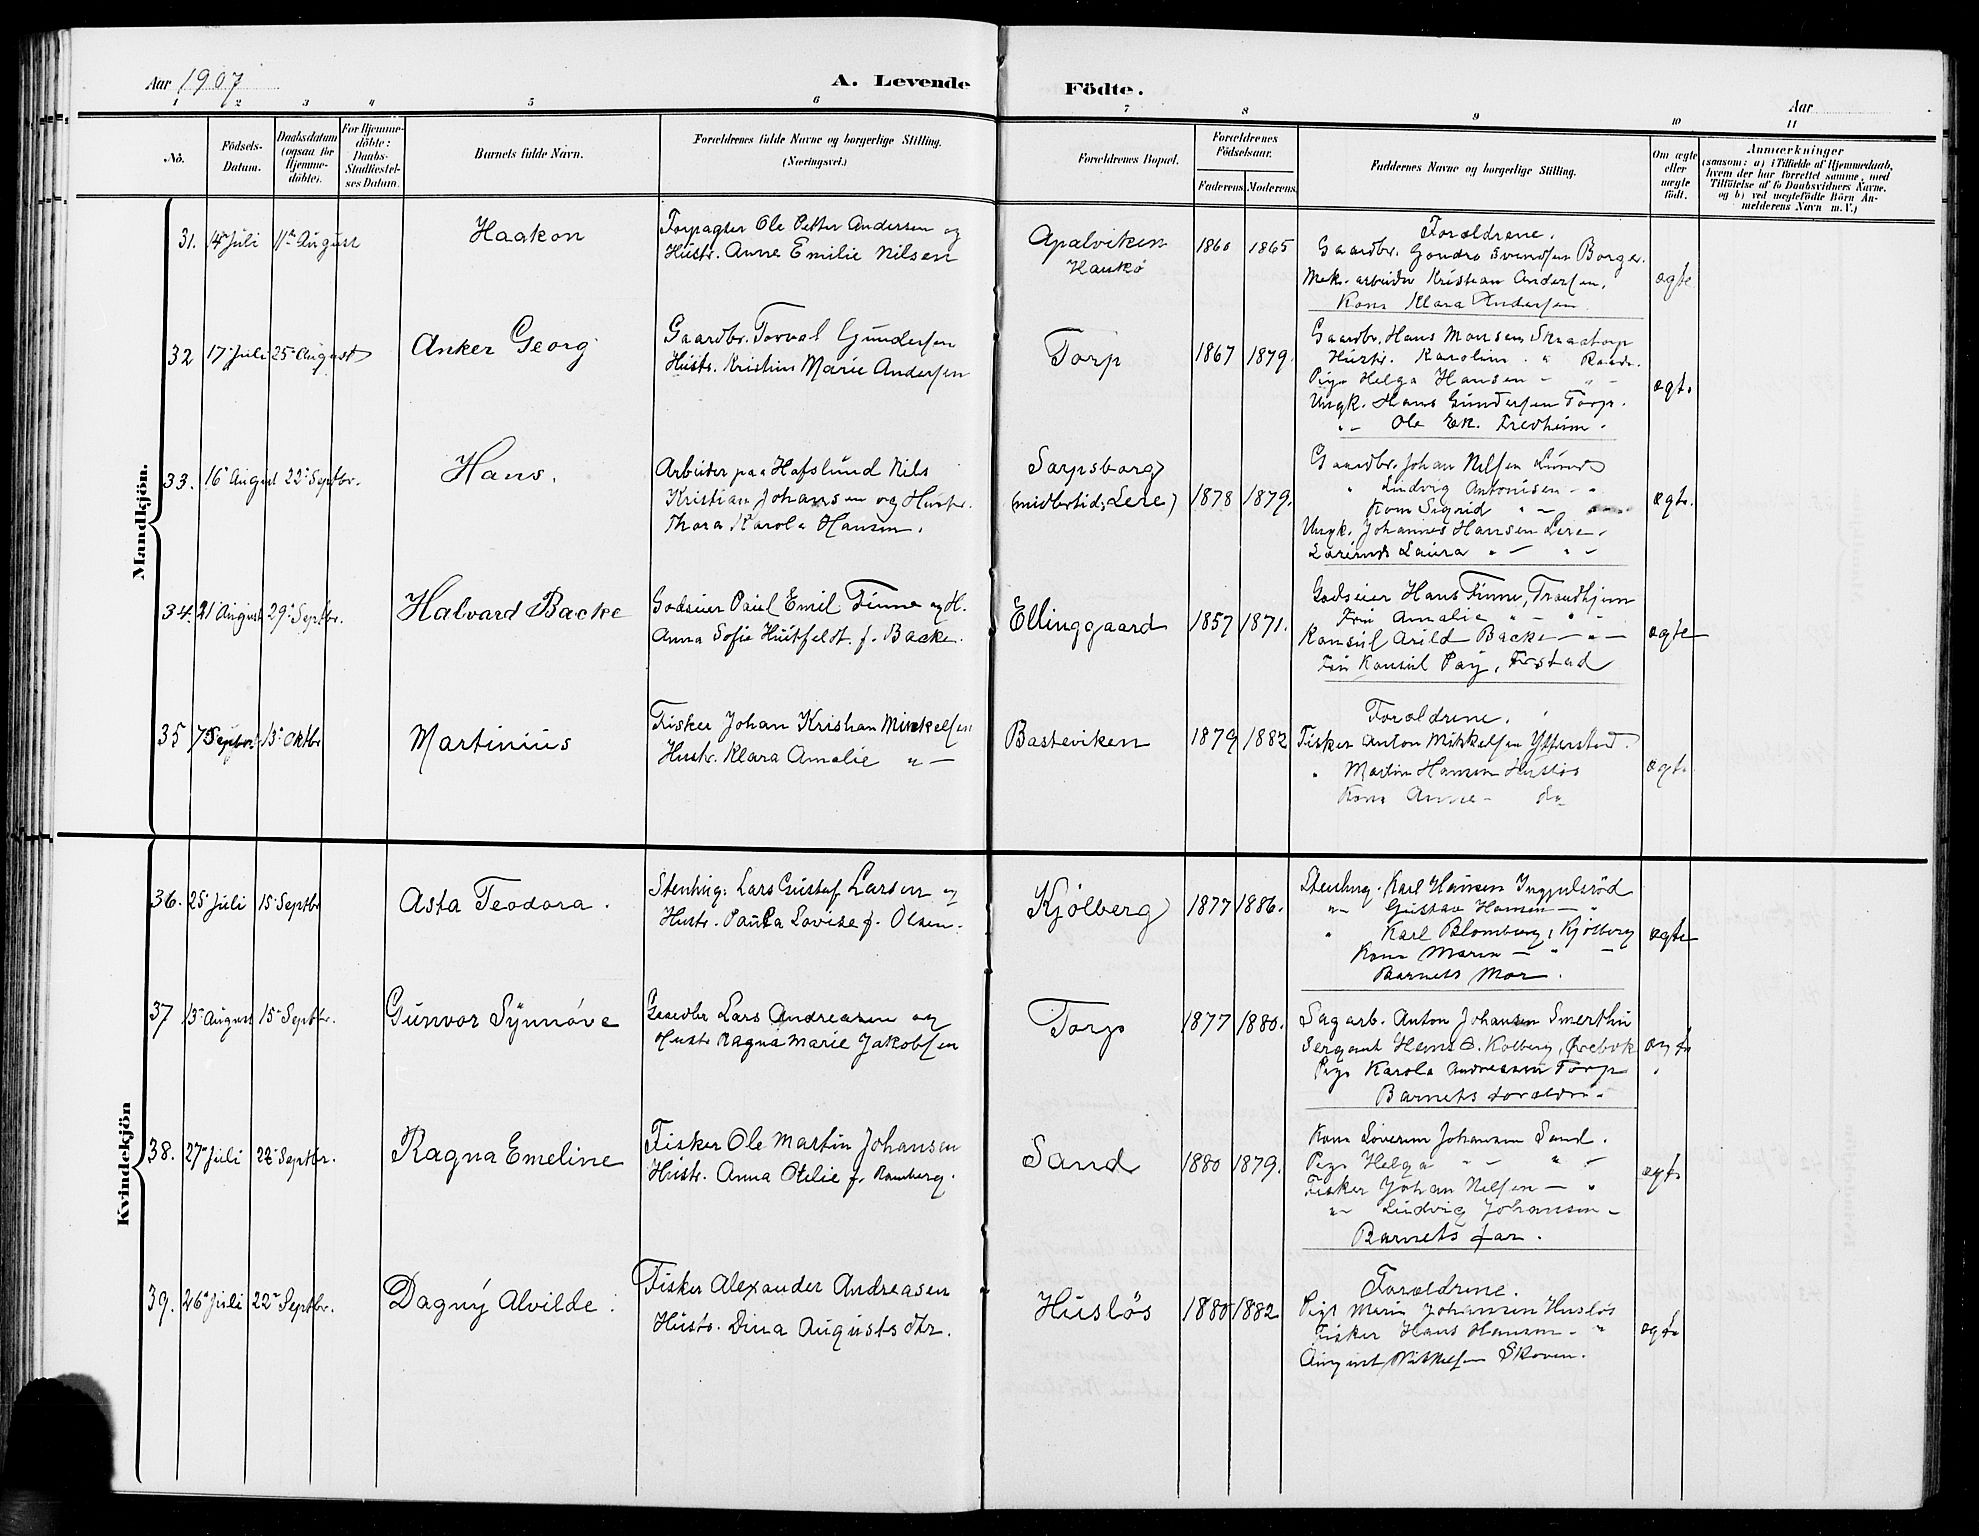 Aar 1907
A. Levende Födte.
Aar
1 2 3 4 5 6 7 8 9 10 11
No.
Födsels-Datum.
Daabsdatum (ogsaa for Hjemme-döbte).
For Hjemme-döbte: Daabs-Stadfæstel-ses Datum.
Barnets fulde Navn.
Forældrenes fulde Navne og borgerlige Stilling. (Næringsvei.)
Forældrenes Bopæl.
Forældrenes Födselsaar.
Faderens. Moderens.
Faddernes Navne og borgerlige Stilling.
Om ægte eller uægte födt.
Anmærkninger
(saasom: a) i Tilfælde af Hjemmedaab, hvem der har forrettet samme, med Tilföielse af to Daabsvidners Navne. og b) ved uægtefödte Börn An-melderens Navn m. V.)
Mandkjön.
31. 14 Juli 11te August
Haakon
Forpagter Ole Petter Andersen og
Hustr. Anne Emilie Nilsen
Apalviken
Hankö
1860 1865
Forældrene.
Gaardbr. Svendsen Borge.
Mek. arbeider Kristian Andersen.
Kone Klara Andersen
ægte
32 17 Juli 25 August
Anker Georg
Gaardbr. Torval Gundersen
Hustr. Kristine Marie Andersen
Torp
1867 1879.
Gaardbr. Hans Monsen Skaatorp
Hustr. Karoline " Raade.
Pige Helga Hansen - " -
Ungk. Hans Gundersen Torp.
" - Ole Ek. Fredheim.
ægte
33. 16 August 22 Septbr.
Hans.
Arbeider paa Hafslund Nils
Kristian Johansen og Hustr.
Thora Karola Hansen.
Sarpsborg
(midlertid. Lere)
1878 1879.
Gaardbr. Johan Nilsen Lund
" Ludvig Antonisen - "
Kone Sigrid " -
Ungk. Johannes Hansen Lere.
Laura " - " -
ægte.
34. 21 August 29 Septbr.
Halvard Backe
Godseier Paul Emil Finne og H.
Anna Sofie Huitfeldt f. Backe.
Ellinggaard
1857 1871.
Godseier Hans Finne, Trondhjem
Fru Amalie " - " -
Konsul Arild Backe - " -
Fru Konsul Pay, Frstad
ægte
35 7 Septbr 13 Oktbr
Martinius
Fisker Johan Kristian Mikkelsen
Hustr. Klara Amalie " -
Basteviken
1879 1882
Forældrene.
Fisker Anton Mikkelsen Ytterstad.
" Martin Hansen Huslös
Kone Anne - do
ægte
Kvindekjön
36. 25 Juli 15 Septbr
Asta Teodora.
Stenhug. Lars Gustaf Larsen og
Hustr. Paula Lovise f. Olsen.
Kjölberg
1877 1886.
Stenhug. Karl Hansen Ingulsröd
" - Gustav Hansen - "
" Karl Blomberg, Kjölberg
Kone Maren - " -
Barnets Mor.
ægte
37 13 August 15 Septbr.
Gunvor Synnöve
Gaardbr Lars Andreasen og
Hustr Ragna Marie Jakobsen
Torp
1877 1880.
Sagarb. Anton Johansen Smerthu
Sergeant Hans Kolberg,
Pige Karola Andreasen Torp
Barnets foreldre.
38. 27 Juli 22 Septbr.
Ragna Emeline
Fisker Ole Martin Johansen
Hustr. Anna Otilie f. Ramberg.
Sand
1880 1879.
Kone Severine Johansen Sand.
Pige Helga " - " -
Fisker Johan Nilsen - "
" - Ludvig Johansen -
Barnets far.
ægte
39. 26 Juli 22 Septbr.
Dagny Alvilde.
Fisker Alexander Andreasen
Hustr. Dina Augustsdtr.
Huslös
1880 1882
Forældrene.
Pige Marie Johansen Huslös
Fisker Hans Hansen - "
August Mikkelsen Skoven.
ægte